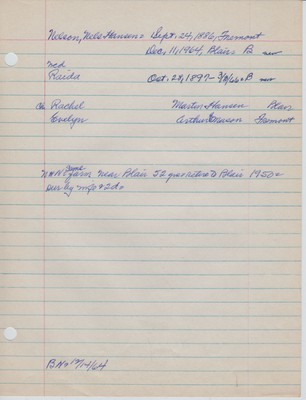 Nelson, Nels Hansen = Sept. 24, 1886, Fremont
Dec. 11, 1964, Blair = B new
ned
Raida Oct. 28, 1897 - 3/8/66 = B
ch Rachel Martin Hansen Blair
Evelyn Arthur Fremont
came
farm near Blair 52 yrs retired Blair 1950 =
sur by wife & 2 ds
BN = 12/14/64